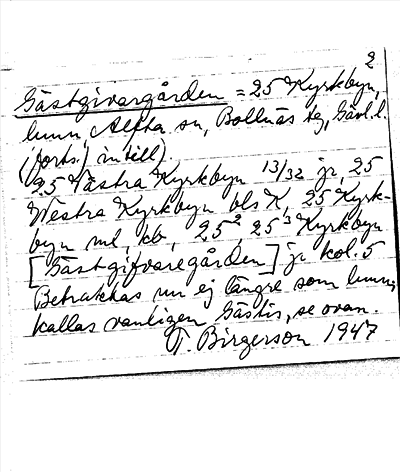 2
Gästgivargården = 25 Kyrkbyn,
hmn Alfta sn, Bollnäs tg, Gävl. l.
(forts.) intill)
25 Västra Kyrkbyn 13/32 jr, 25
Westra Kyrkbyn bls K, 25 Kyrk-
byn ml, kb, 25², 25³ Kyrkbyn
[Gästgifvaregården] jr kol. 5
Betraktas nu ej längre som hmn,
kallas vanligen Gästis, se ovan.
T. Birgerson 1947